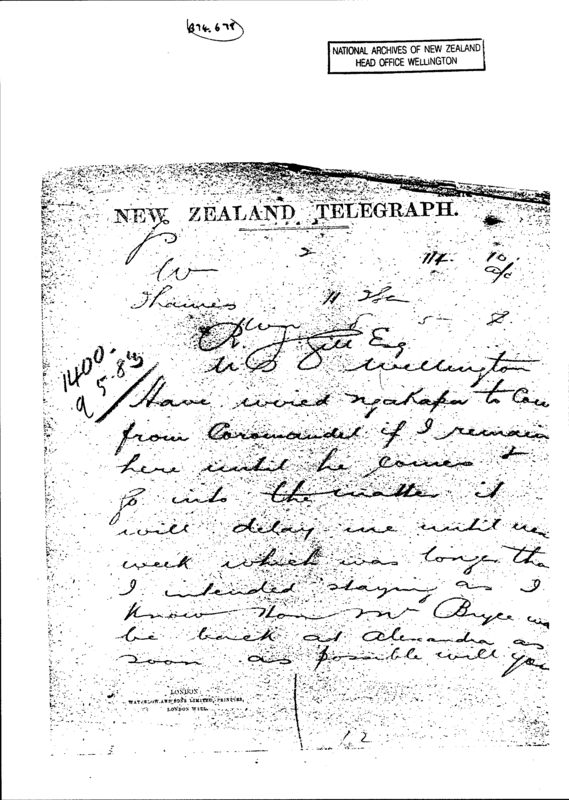 B74.678
NATIONAL ARCHIVES OF NEW ZEALAND
HEAD OFFICE WELLINGTON
NEW ZEALAND TELEGRAPH.
W 2 114. 10.
Thames 11
5 8
Gill Esq
Wellington
1400.
9 5.83
Have wired Ngakapa to Com
from Coromandel if I remain
here until he comes &
go into the matter it
will delay me until
week which was longer tha
I intended staying as I
Know Hon Mr Bryce
be back at Alexandra as
soon as possible will you
LONDON
WATERLOW AND SONS LIMITED, PRINTERS,
LONDON WALL.
12